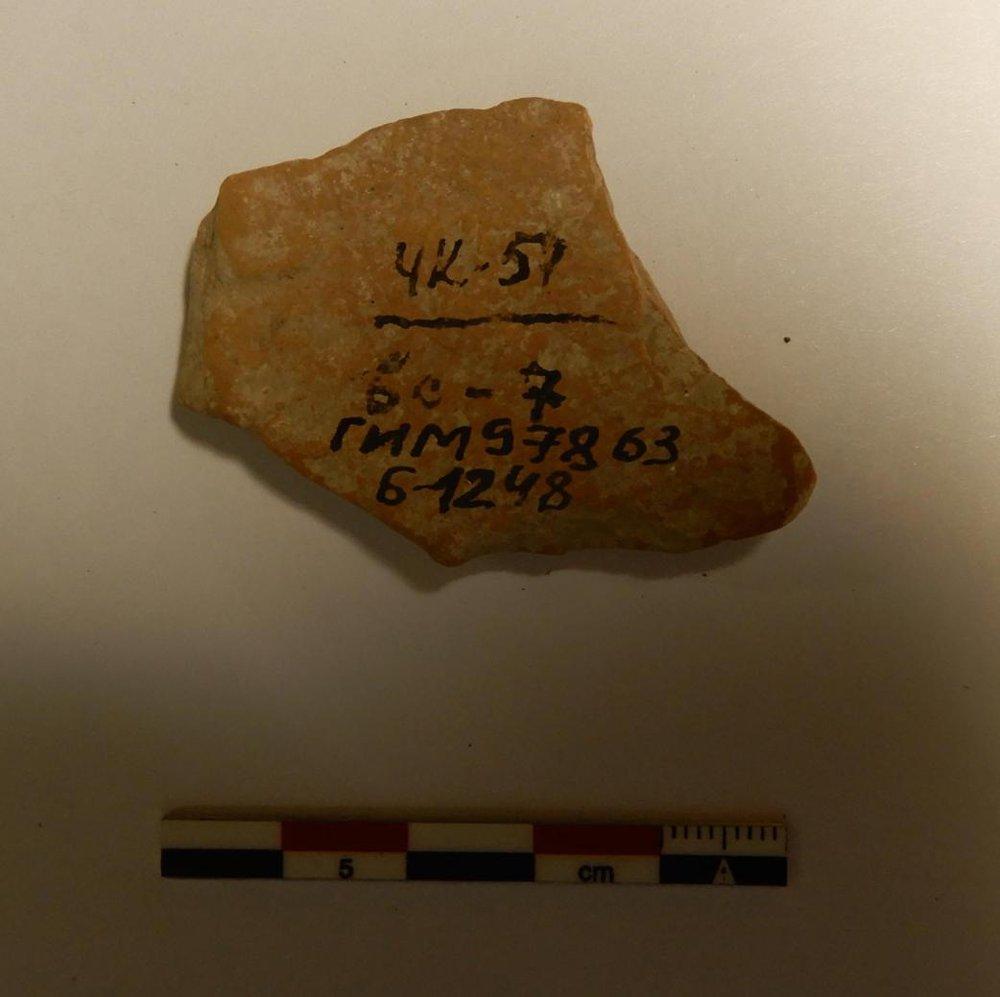 ЧК-51
Бс-7
ГИМ 97863
Б-1248
5 cm